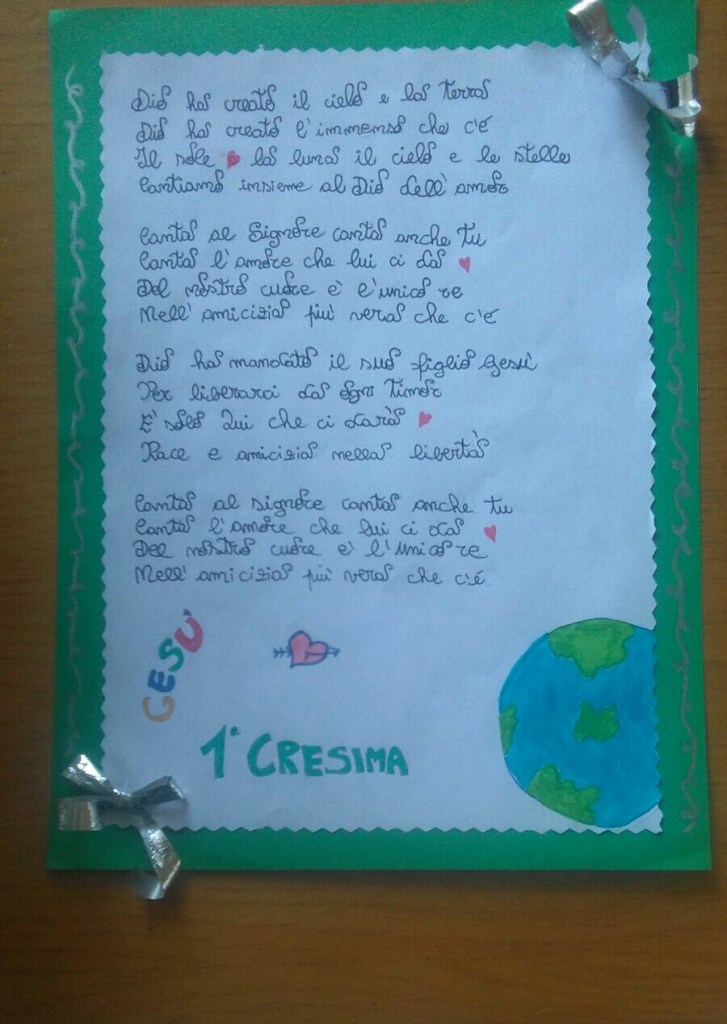 Dio ha creato il cielo e la Terra
Dio ha creato l'immenso che c'é
Il sole la luna il cielo e le stelle
Cantiamo insieme al Dio dell'amor
Canta al Signore canta anche tu
Canta l'amore che lui ci da
Del nostro cuore è l'unico re
Nell'amicizia piu' vera che c'é
Dio ha mandato il suo figlio Gesù
Per liberarci da ogni timor
E' solo Lui che ci darà
Pace e amicizia nella libertà
Canta al signore canta anche tu
Canta l'amore che lui ci da
Del nostro cuore e' l'unico re
Nell'amicizia piu' vera che c'é
GESU'
1ª CRESIMA